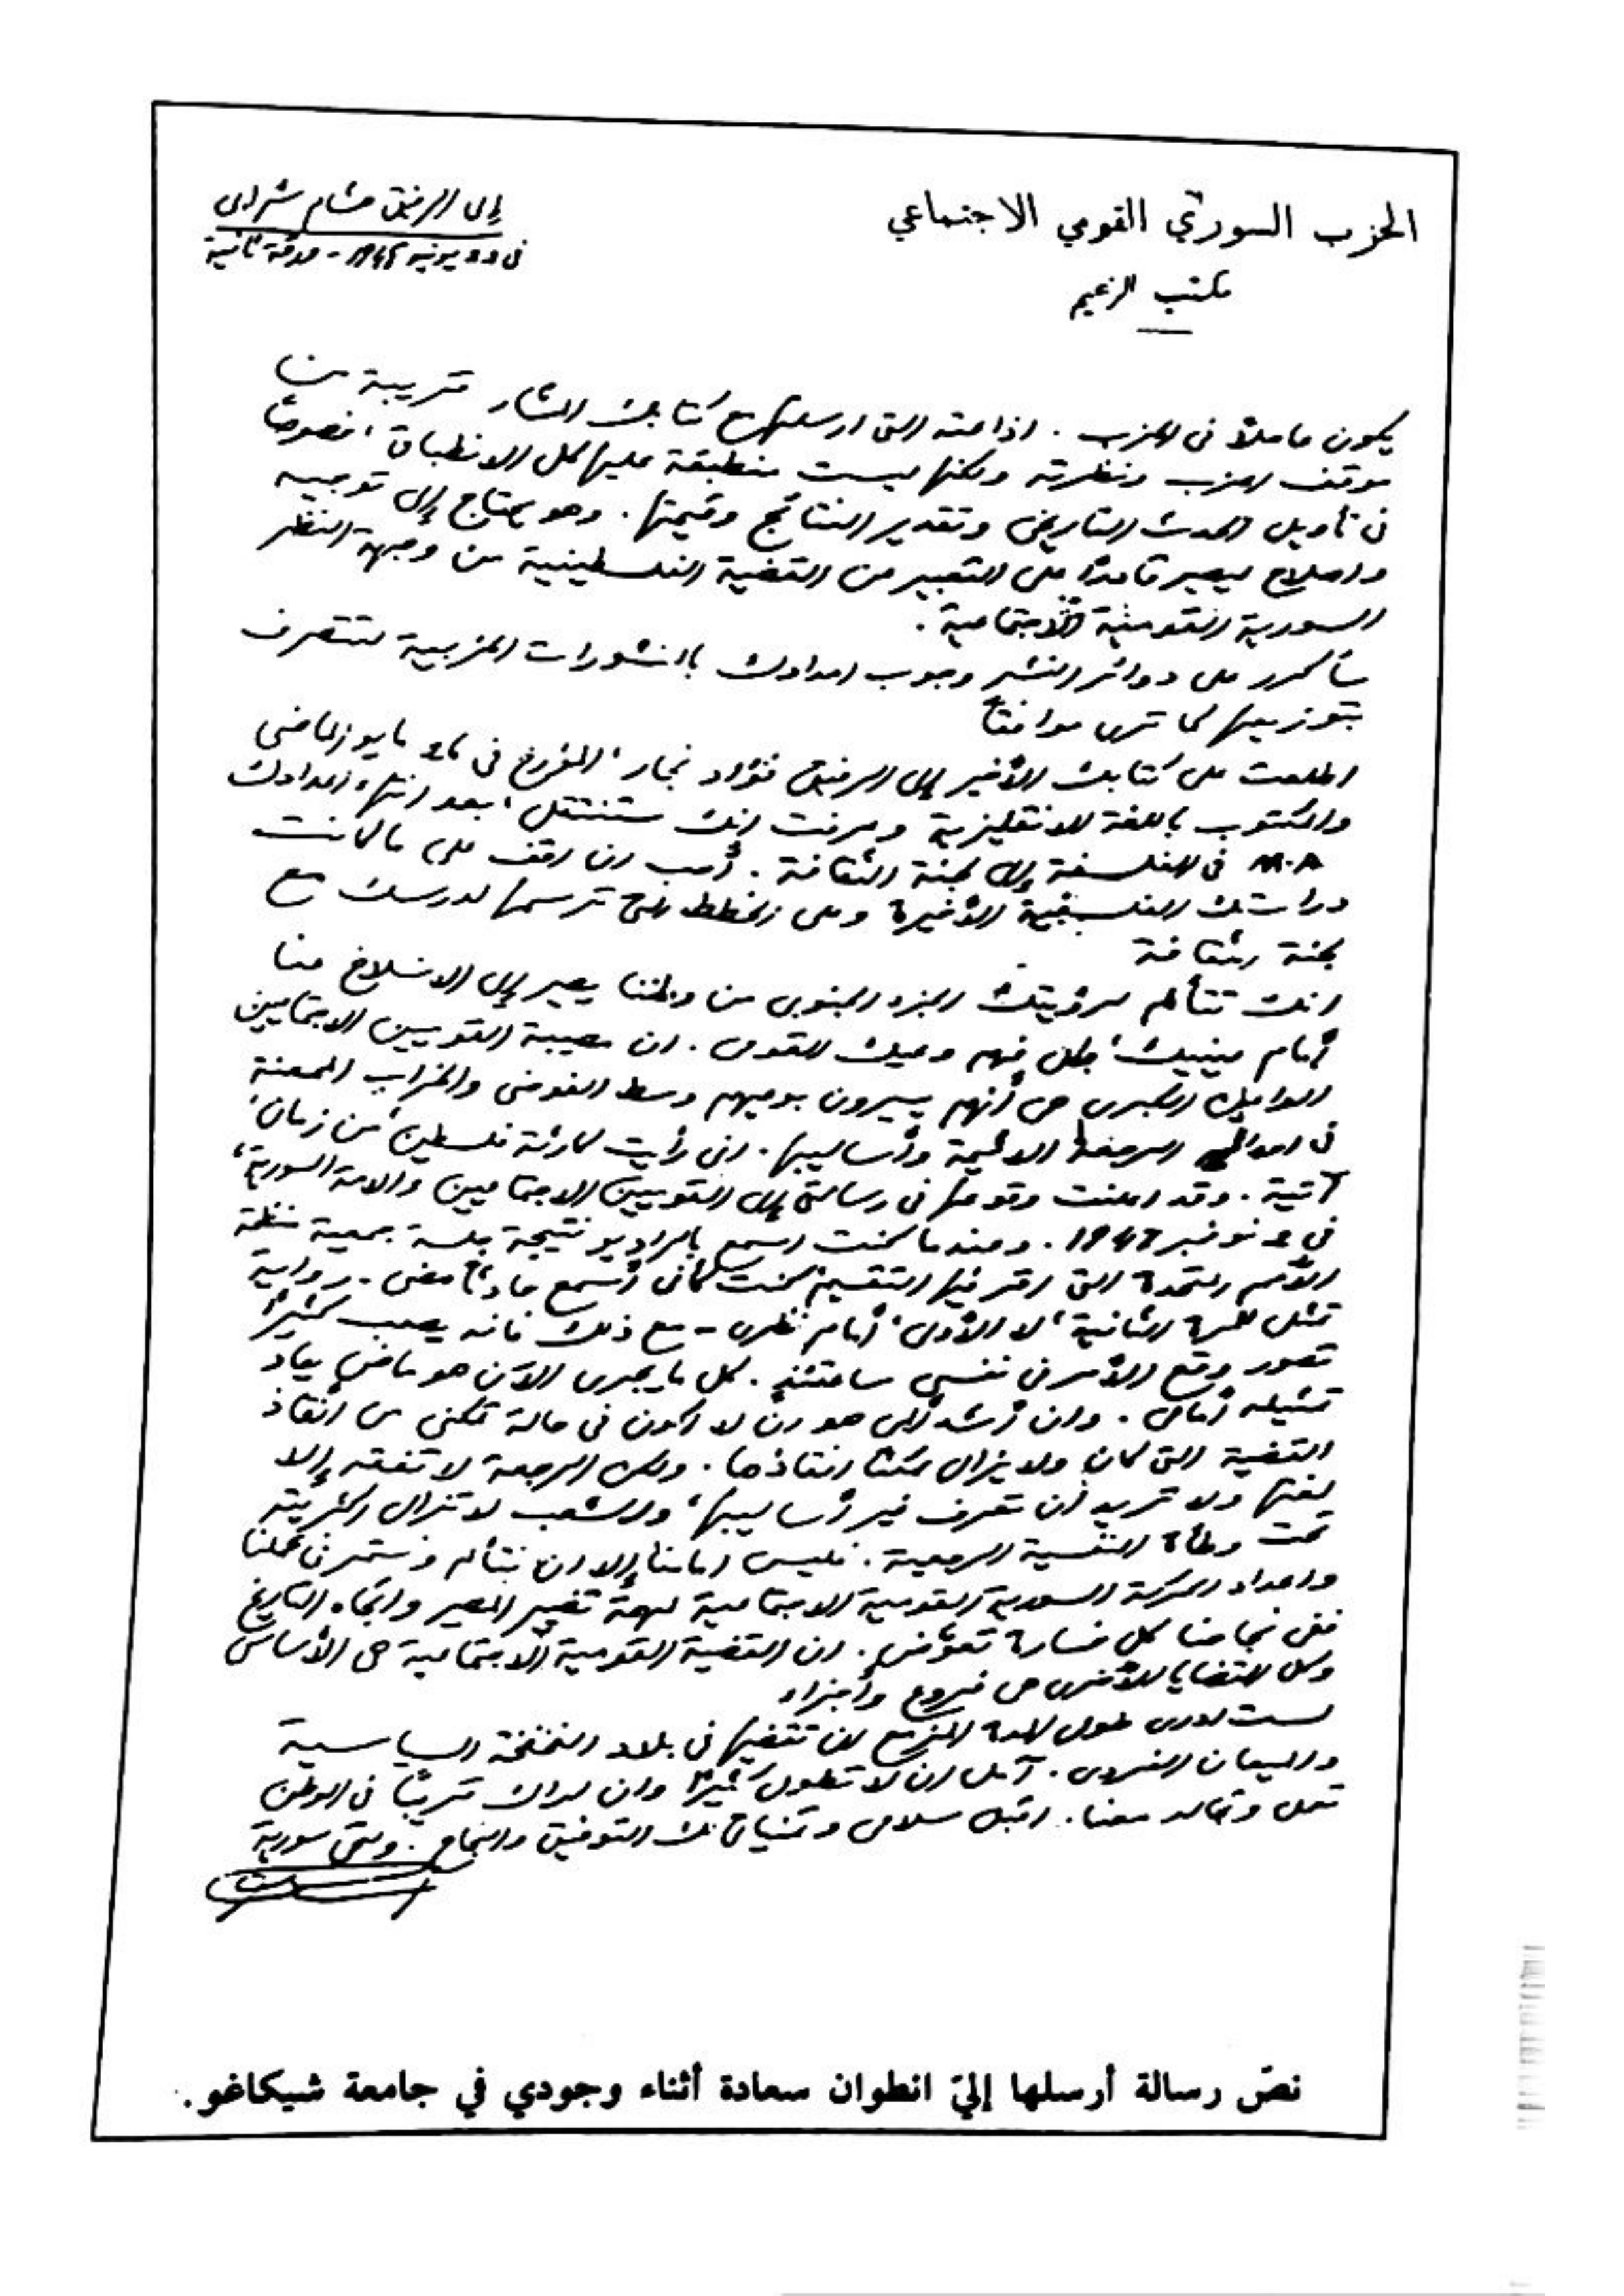 الحزب السوري القومي الاجتماعي
مكتب الزعيم
إلى الرفيق هشام شرابي
في يونيه - ورقة ثانية
يكون عاملاً في الحزب. اذاعته التي ارسلتها مع كتابك المشار قريبة من
موقف الحزب ونظرته ولكنها ليست منطبقة عليها كل الانطباق، خصوصاً
في تأويل الحدث التاريخي وتقدير النتائج وقيمتها. وهو يحتاج إلى توجيه
واصلاح ليصير قادراً على التعبير عن القضية الفلسطينية من وجهة النظر
السورية القومية الاجتماعية.
سأكرر على دوائر النشر وجوب امدادك بالنشورات الحزبية لتتصرف
بتوزيعها كما ترى موافقاً
اطلعت على كتابك الأخير إلى الرفيق فؤاد نجار، المؤرخ في مايو الماضي
والمكتوب باللغة الانقليزية وعرفت انك ستنتقل، بعد انتهاء اعدادك
M.A في الفلسفة إلى لجنة الثقافة. أحب ان اقف على ما كانت
دراستك الفلسفية الأخيرة وعلى الخطط التي ترسمها لدرسك مع
لجنة الثقافة
انك تتألم لرؤيتك الجزء الجنوبي من وطننا يصير إلى الانسلاخ عنا
أمام عينيك، وعيك القومي. ان مصيبة القوميين الاجتماعيين
الواعين الكبرى هي أنهم يسيرون بوعيهم وسط الفوضى والخراب الممعنة
في الرجعة وأساليبها. اني رأيت كارثة فلسطين من زمان،
آتية. وقد اعلنت وقوعها في رسالتي إلى القوميين الاجتماعيين والامة السورية،
في 2 نوفمبر 1947. وعندما كنت اسمع بالراديو نتيجة جلسة جمعية منظمة
الأمم المتحدة التي اقر فيها التقسيم كنت كأني أسمع حادثاً مضى - رواية
تمثل للمرة الثانية، لا الأولى، أمام نظري - مع ذلك فانه يصعب كثيراً
تصور وقع الأمر في نفسي ساعتئذٍ. كل ما يجري الآن هو ماضٍ يعاد
تمثيله أمامي. وان أشد ألمي هو ان لا اكون في حالة تمكني من انقاذ
القضية التي كان ولا يزال ممكناً انقاذها. ولكن الرجعة لا تفقه إلا
لغتها ولا تريد أن تعرف غير أساليبها، والشعب لا تزال اكثريته
تحت وطأة النفسية الرجعية. فليس امامنا إلا ان نتألم ونستمر في عملنا
واعداد الحركة السورية القومية الاجتماعية لمهمة تغيير المصير واتجاه التاريخ
ففي نجاحنا كل خسارة تعوّض. ان القضية القومية الاجتماعية هي الأساس
وكل القضايا الأخرى هي فروع وأجزاء
لست ادري طول المدة المزمع ان تقضيها في بلاد السياسية
آمل ان لا تطول كثيراً وان اراك قريباً في الوطن
تعمل معنا. اقبل سلامي وتمنياتي لك التوفيق والنجاح. ولتحي سورية
نصّ رسالة أرسلها إليّ انطوان سعادة أثناء وجودي في جامعة شيكاغو.